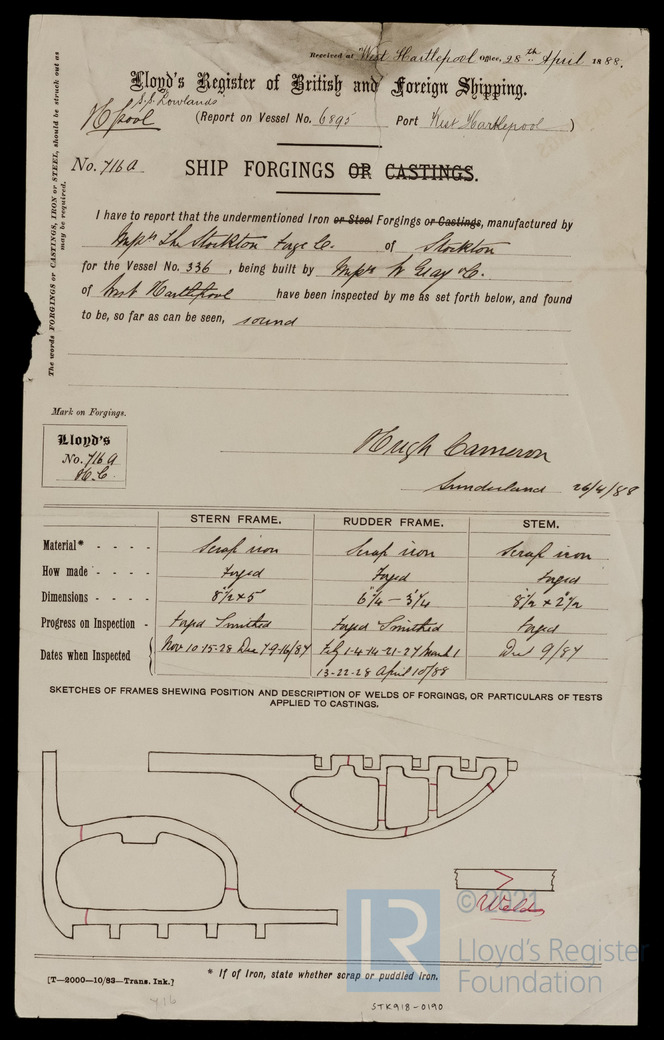 Received at West Hartlepool Office, 28th April 1888.
Lloyd's Register of British and Foreign Shipping.
S.S. "Lowlands"
H'pool (Report on Vessel No. 6895 Port West Hartlepool)
No. 716A SHIP FORGINGS OR CASTINGS.
The words FORGINGS or CASTINGS, IRON or STEEL, should be struck out as
may be required.
I have to report that the undermentioned Iron or Steel Forgings or Castings, manufactured by
Messrs The Stockton Forge Co. of Stockton
for the Vessel No. 336, being built by Messrs W Gray & Co.
of West Hartlepool have been inspected by me as set forth below, and found
to be, so far as can be seen, sound
Mark on Forgings.
Lloyd's
No. 716A
H.C.
Hugh Cameron
Sunderland 26/4/88
STERN FRAME. RUDDER FRAME. STEM.
Material* - - - - Scrap iron Scrap iron Scrap iron
How made - - - - Forged Forged Forged
Dimensions - - - - 8½ x 5" 6¼ – 3¼ 8½ x 2½
Progress on Inspection - Forged Smithed Forged Smithed Forged
Dates when Inspected Nov 10-15-28 Dec 7-9-16/87 Feb 1-4-14-21-27 March 1 Dec 9/87
13-22-28 April 10/88
SKETCHES OF FRAMES SHEWING POSITION AND DESCRIPTION OF WELDS OF FORGINGS, OR PARTICULARS OF TESTS
APPLIED TO CASTINGS.
Welds
© 2021
LR
Lloyd's Register
Foundation
* If of Iron, state whether scrap or puddled iron.
[T—2000—10/83—Trans. Ink.]
716
STK918-0190